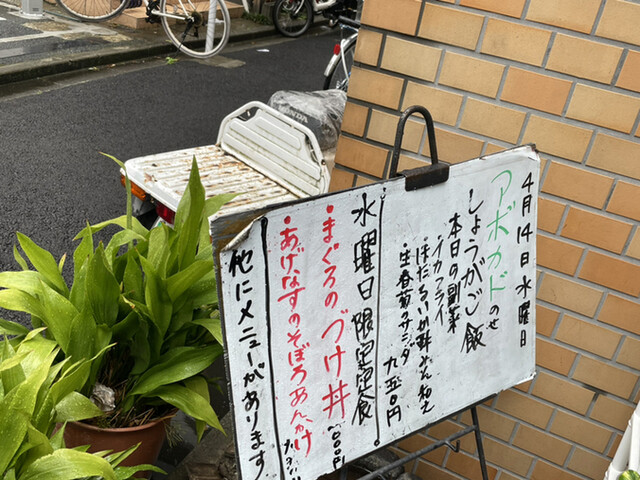 4月14日水曜日
アボカドのせ
しょうがご飯
本日の副菜
イカフライ
ほたるいか酢みそ和え
生春菊のサラダ
九五〇円
水曜日限定定食
・まぐろのづけ丼
・あげなすのそぼろあんかけ
他にメニューがあります
HONDA